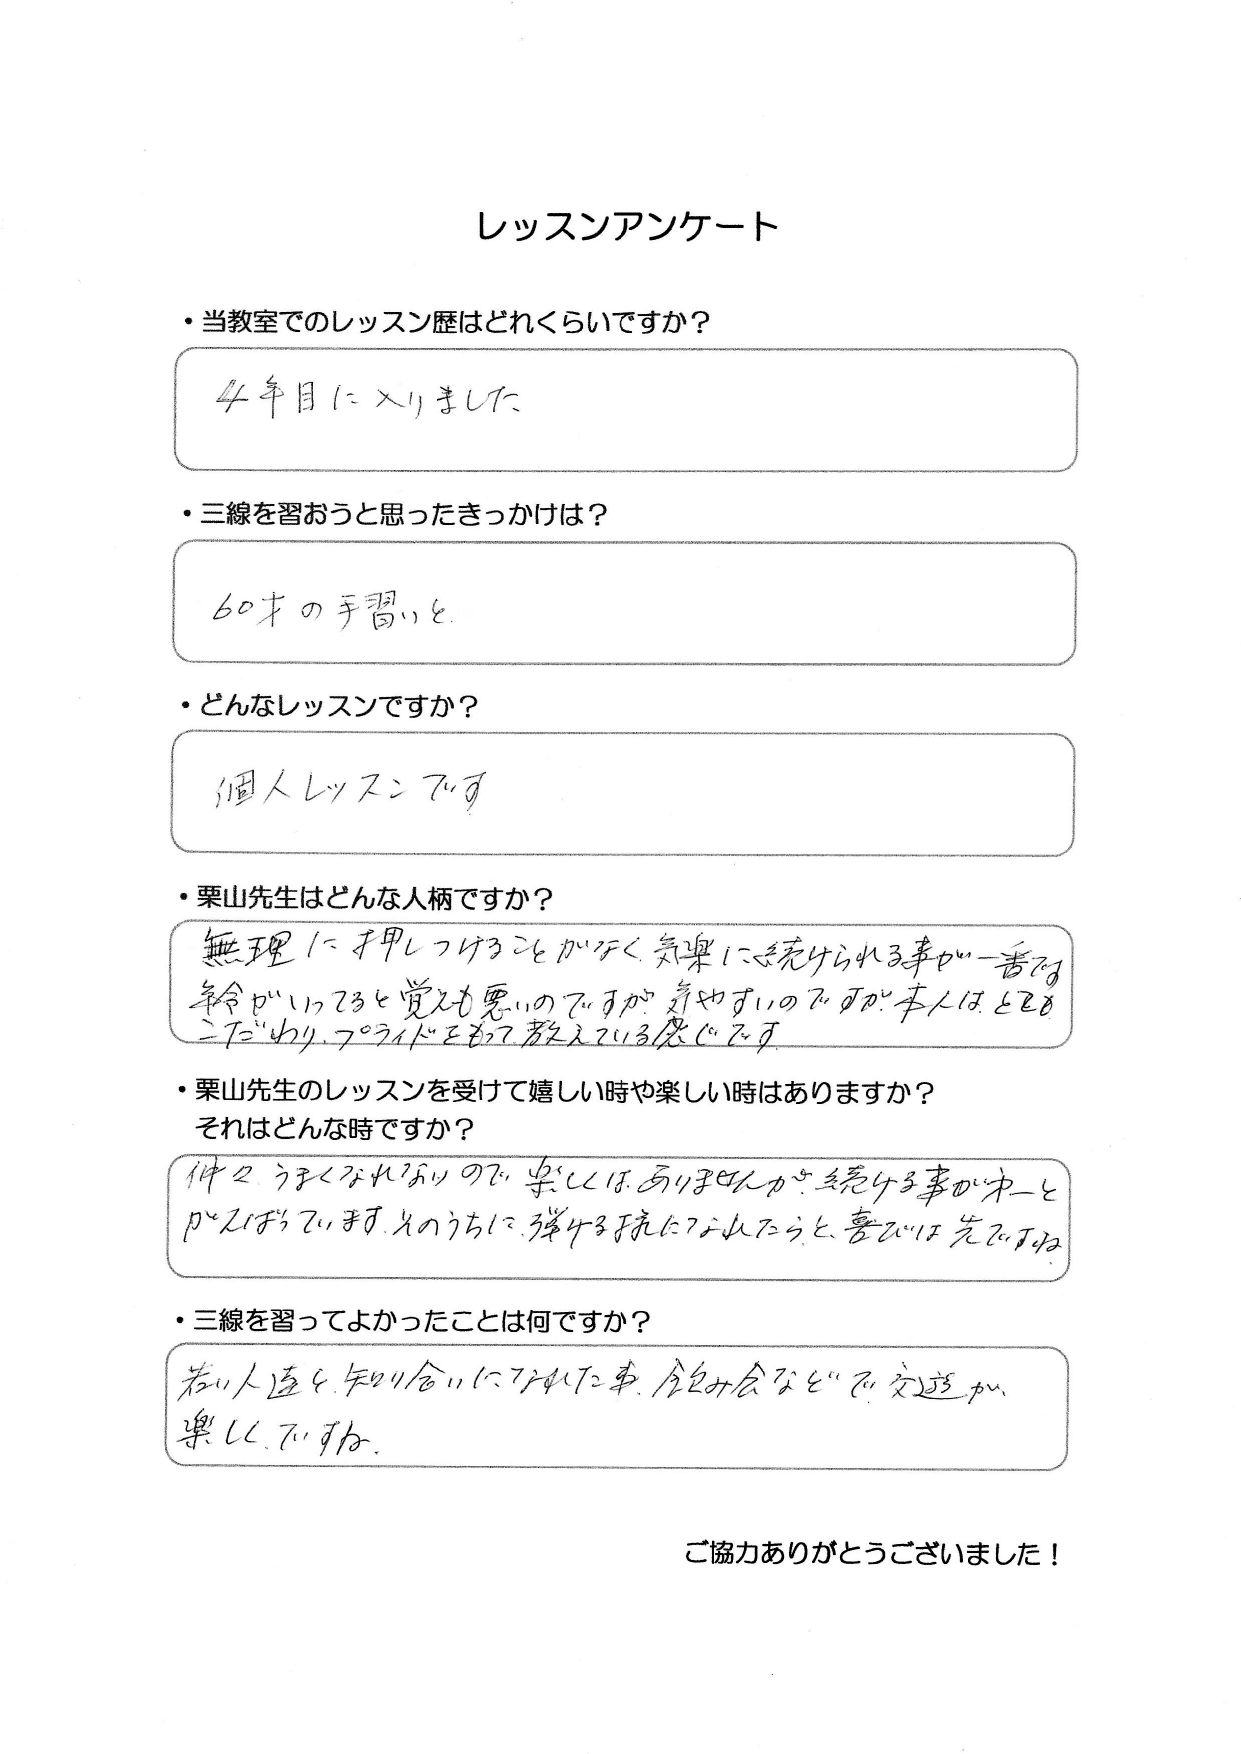 レッスンアンケート
・当教室でのレッスン歴はどれくらいですか？
4年目に入りました
・三線を習おうと思ったきっかけは？
60才の手習いと.
・どんなレッスンですか？
個人レッスンです
・栗山先生はどんな人柄ですか？
無理に押しつけることがなく、気楽に続けられる事が一番です
年令がいってると覚えも悪いのですが、気やすいのですが、本人はとても
こだわり、プライドをもって教えている感じです
・栗山先生のレッスンを受けて嬉しい時や楽しい時はありますか？
それはどんな時ですか？
仲々うまくなれないので、楽しくは、ありませんが、続ける事が才一と
がんばっています。そのうちに、弾ける様になれたらと、喜びは先ですね
・三線を習ってよかったことは何ですか？
若い人達と、知り合いになれた事、飲み会などで、交遊が、
楽しく、ですね.
ご協力ありがとうございました！